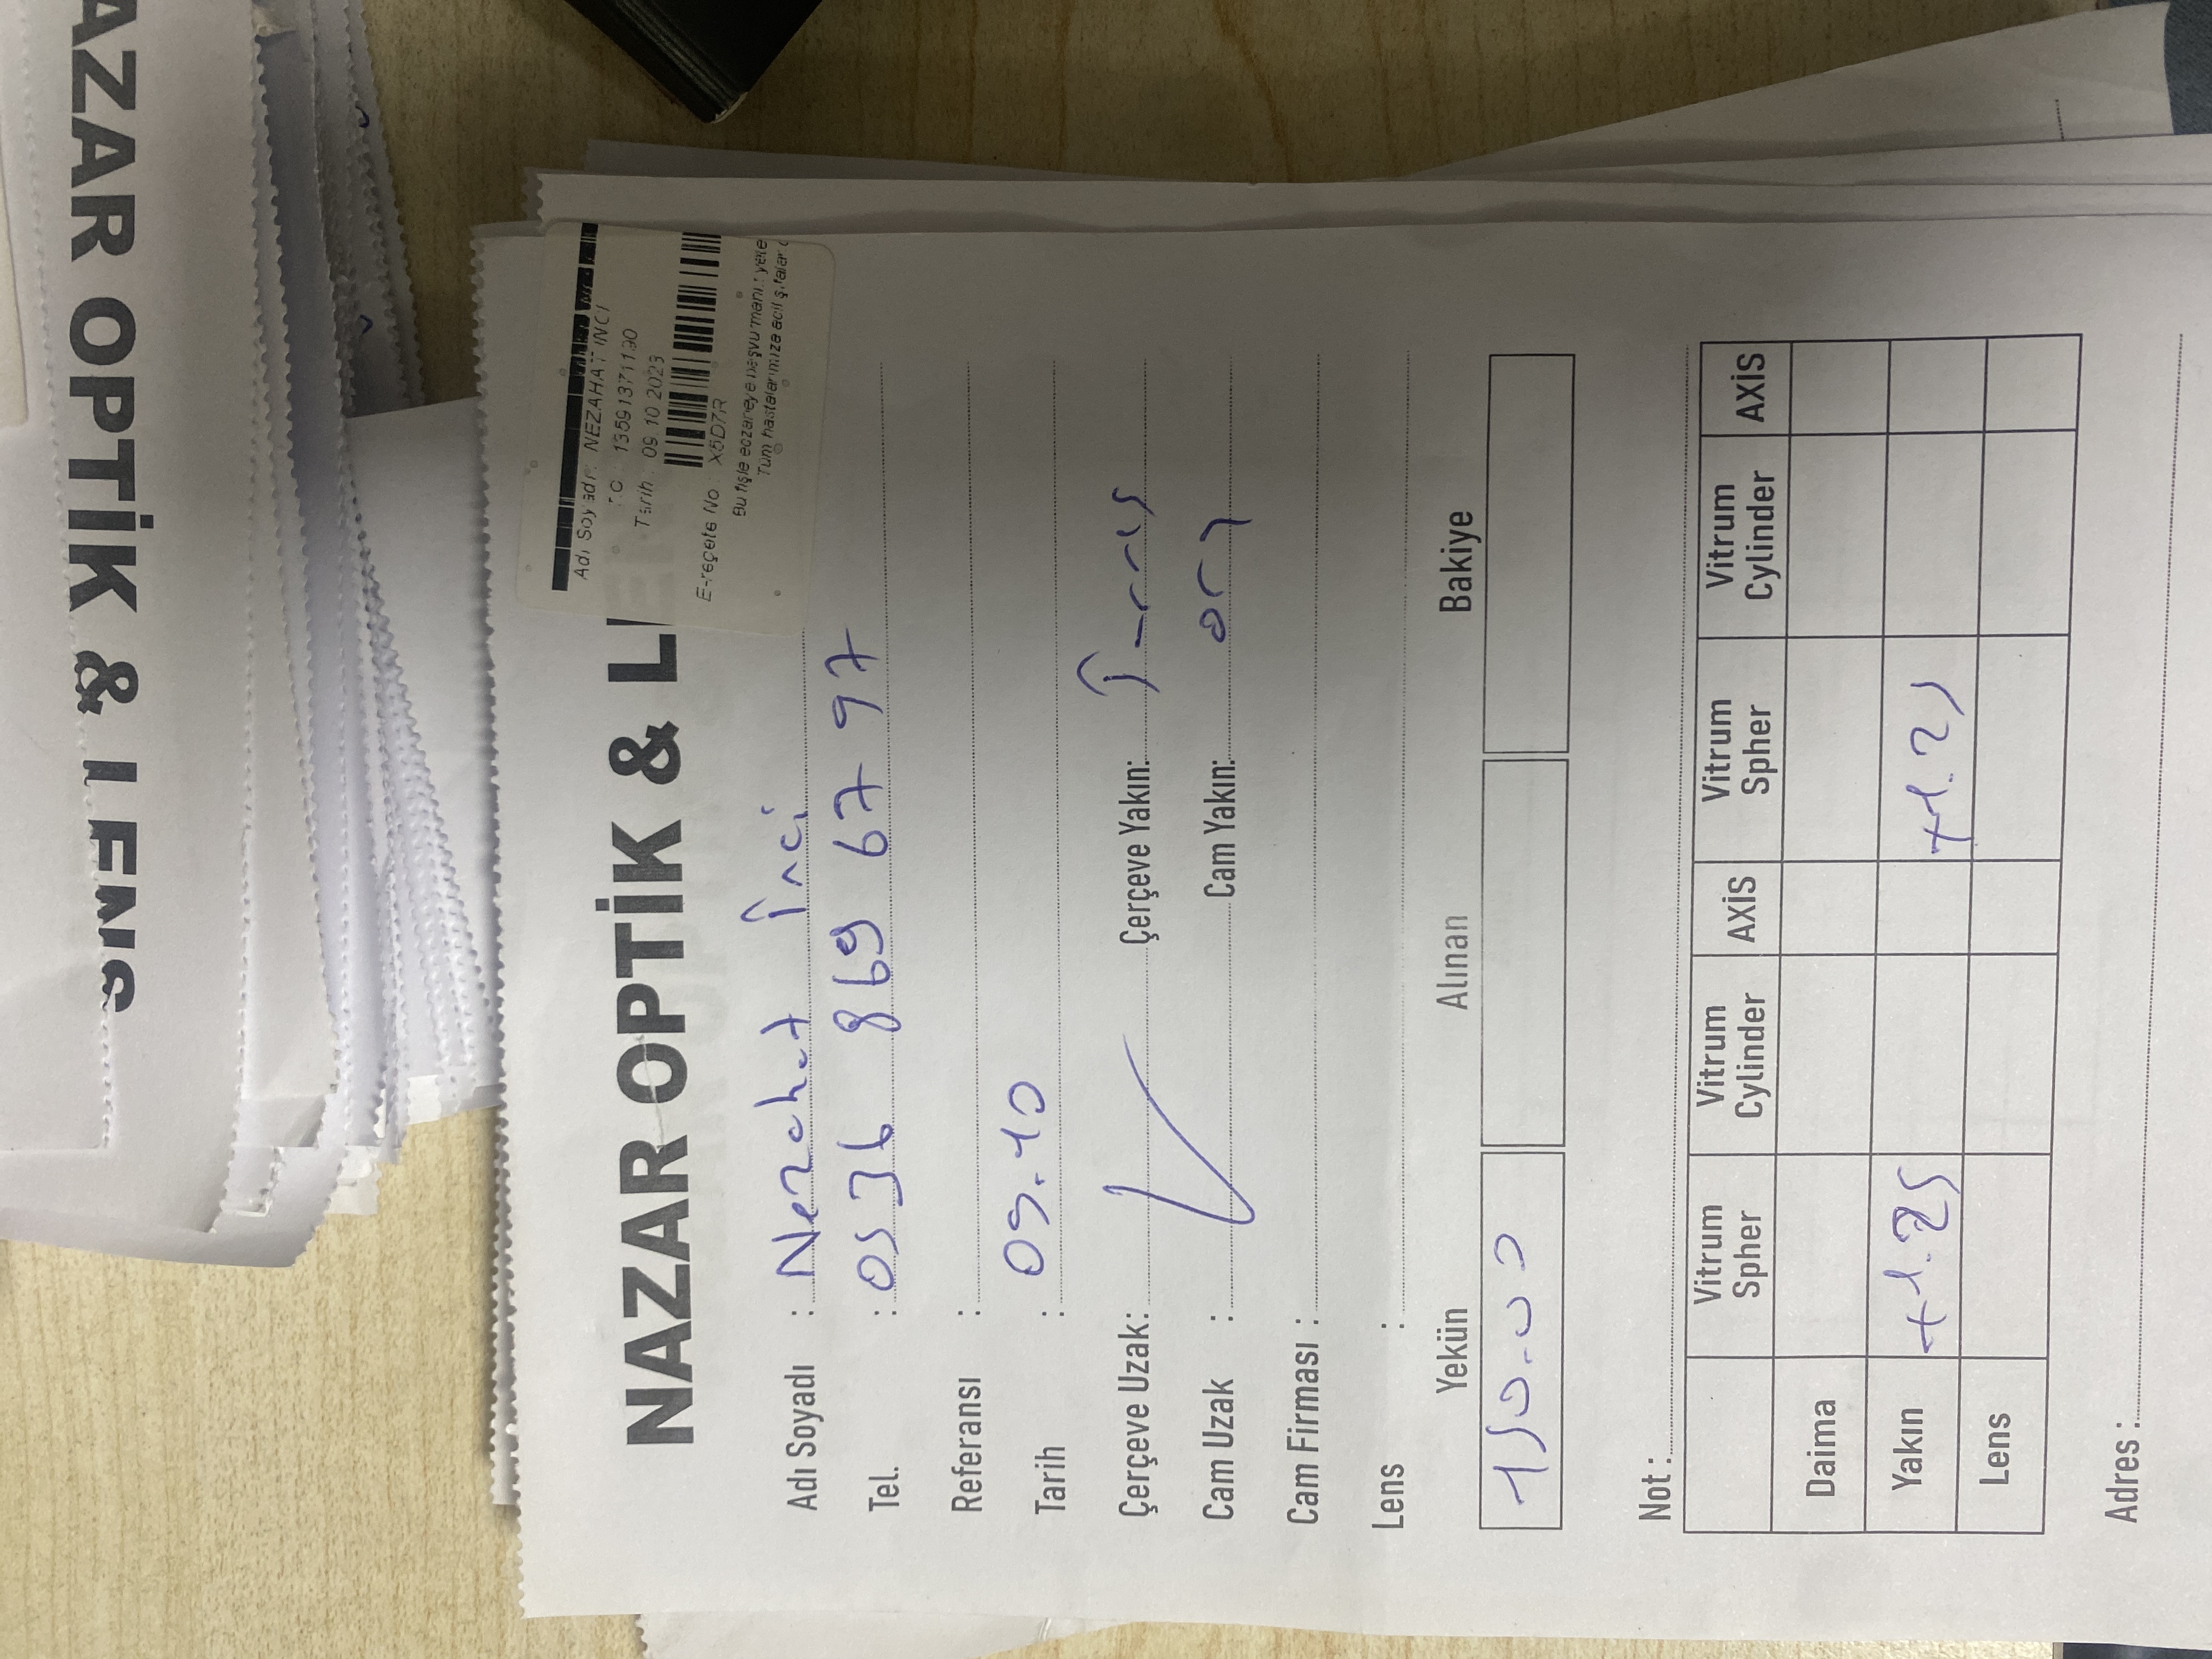 NAZAR OPTİK & LENS
NAZAR OPTİK & L
Adı Soyadı: NEZAHAT İNCİ
TC : 13591371190
Tarih : 09.10.2023
E-reçete No : X5D7R
Bu fişle eczaneye başvurmanız yete
Tüm hastalarımıza acil şifalar d
Adı Soyadı : Nezahat İnci
Tel. : 0536 869 67 97
Referansı :
Tarih : 09.10
Çerçeve Uzak: Çerçeve Yakın:
Cam Uzak : Cam Yakın: org
Cam Firması :
Lens :
Yekün Alınan Bakiye
150.00
Not :
Vitrum Spher Vitrum Cylinder AXİS Vitrum Spher Vitrum Cylinder AXİS
Daima
Yakın +1.25 +1.25
Lens
Adres :